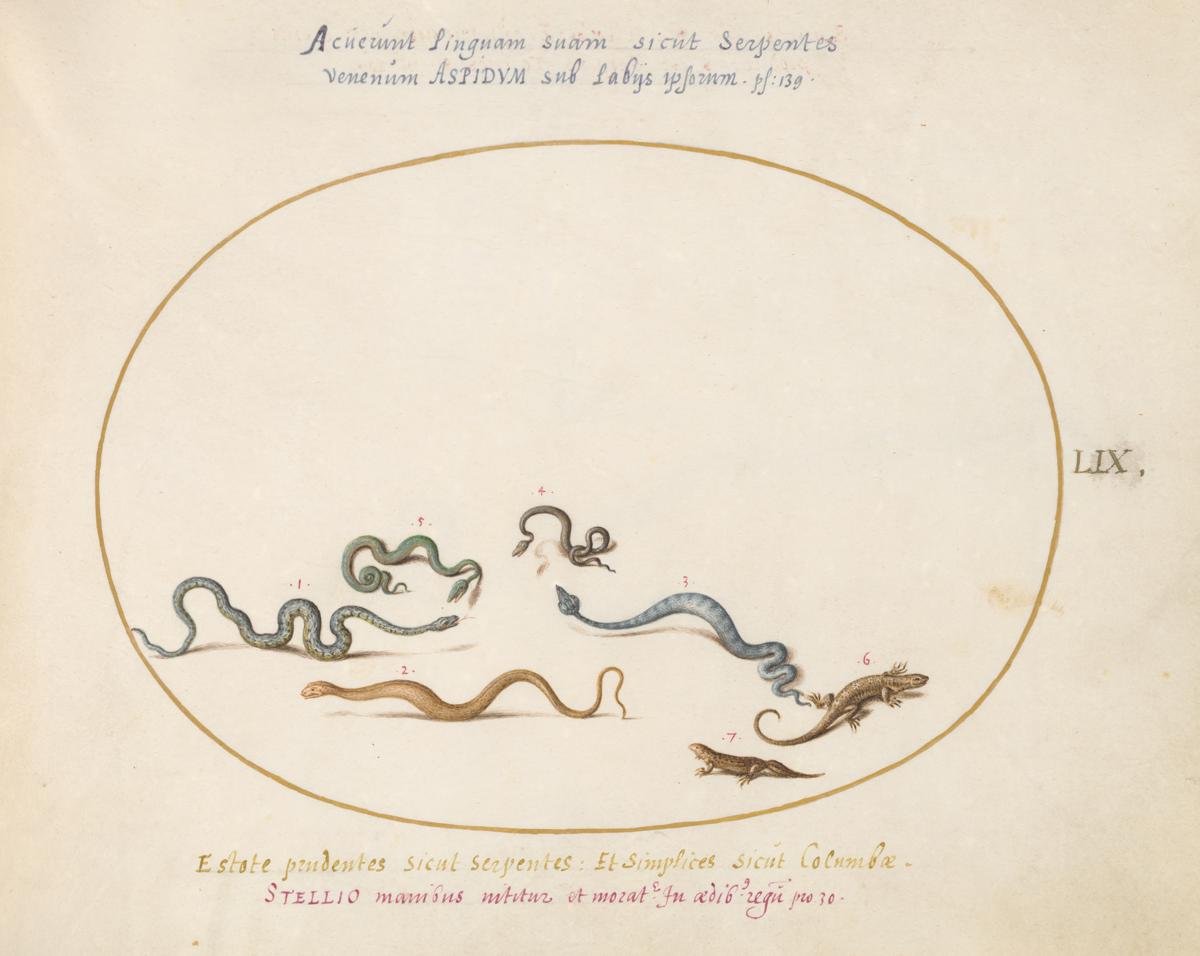 Acuerunt linguam suam sicut Serpentes
venenum ASPIDVM sub labijs ipsorum. ps: 139.
LIX,
.4.
.5.
.1.
.3.
.6.
.2.
.7.
Estote prudentes sicut serpentes: Et Simplices sicut Columbæ.
STELLIO manibus nititur et morat^r. In ædib⁹ regũ pro. 30.